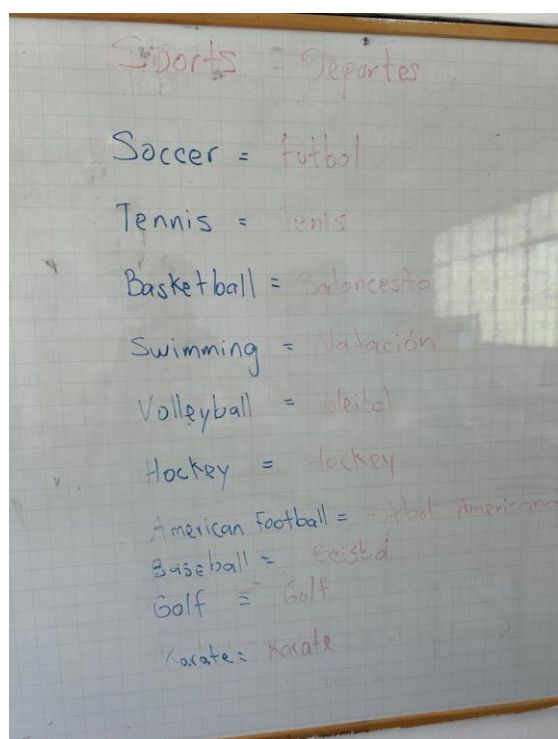 Sports = Deportes
Soccer = Futbol
Tennis = Tenis
Basketball = Baloncesto
Swimming = Natación
Volleyball = Voleibol
Hockey = Hockey
American Football = Futbol Americano
Baseball =
Golf = Golf
Karate = Karate